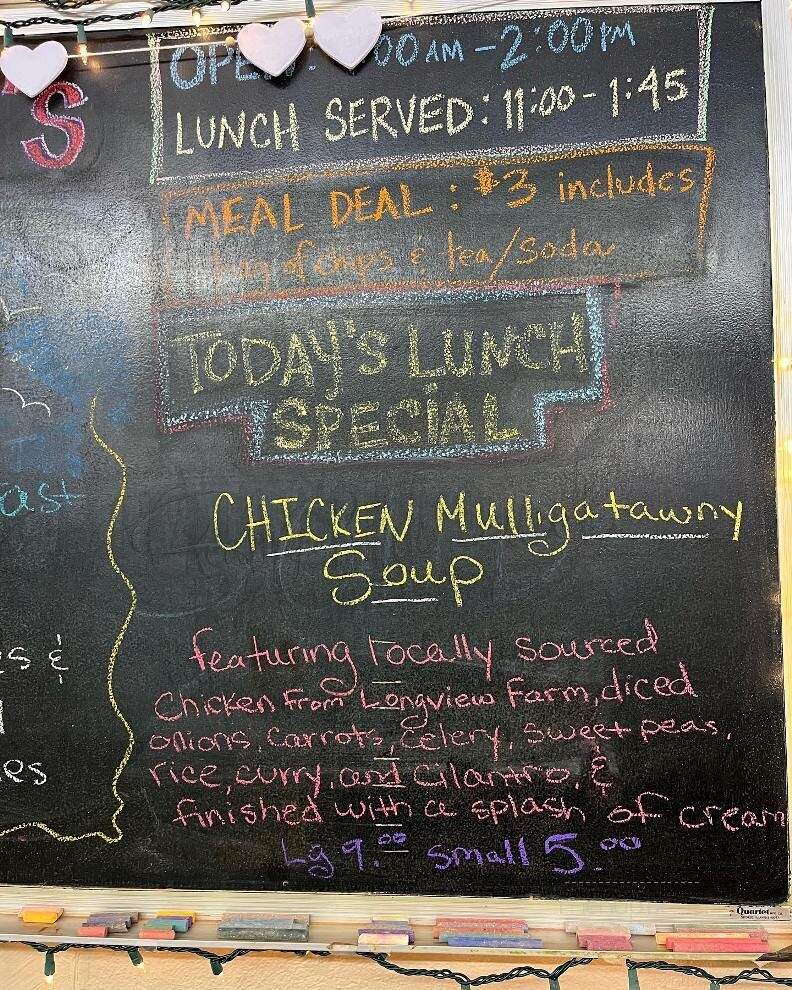 'S
OPEN: :00 AM - 2:00 PM
LUNCH SERVED: 11:00 - 1:45
MEAL DEAL: $3 includes
bag of chips & tea/soda
TODAY'S LUNCH
SPECIAL
CHICKEN Mulligatawny
Soup
featuring locally sourced
Chicken from Longview Farm, diced
onions, carrots, celery, sweet peas,
rice, curry, and cilantro, &
finished with a splash of cream
Lg 9.00 small 5.00
ast
es &
es
Quartet